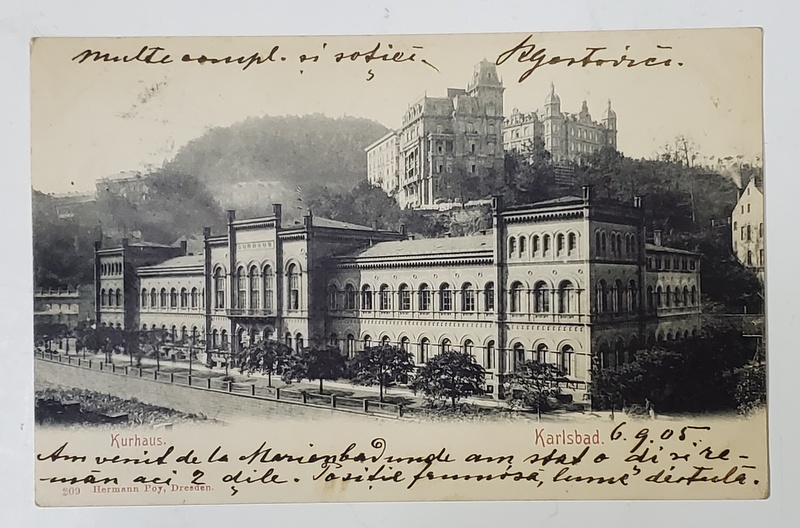 multe compl. și soției,
KURHAUS
Kurhaus.
Karlsbad. 6.9.05
Am venit de la Marienbad unde am stat o di și re-
mân aci 2 dile. Positie frumósă, lume destulă.
209 Hermann Poy, Dresden.